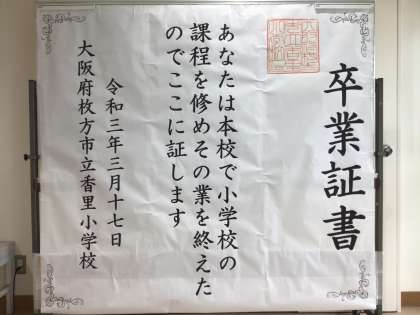 卒業証書
あなたは本校で小学校の
課程を修めその業を終えた
のでここに証します
令和三年三月十七日
大阪府枚方市立香里小学校